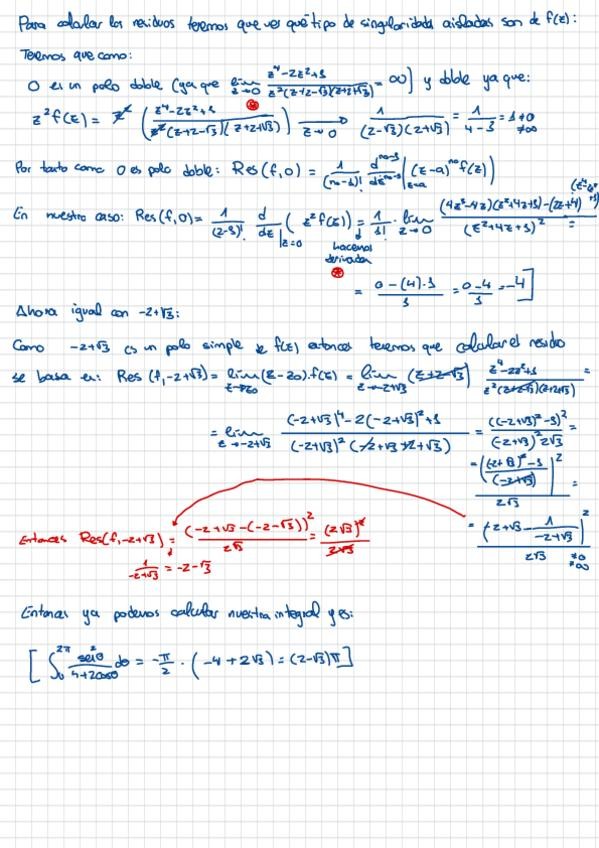 Para calcular los residuos tenemos que ver qué tipo de singularidades aisladas son de f(z):
Tenemos que como:
0 es un polo doble (ya que lim z→0 (z⁴-2z²+1)/(z²(z+2-√3)(z+2+√3)) = ∞) y doble ya que:
z² f(z) = z² ( (z⁴-2z²+1)/(z²(z+2-√3)(z+2+√3)) ) → z→0 1/((2-√3)(2+√3)) = 1/(4-3) = 1 ≠0 ≠∞
Por tanto como 0 es polo doble: Res(f,0) = 1/(n-1)! d^(n-1)/dz^(n-1) |z=a (z-a)^n f(z))
En nuestro caso: Res(f,0) = 1/(2-1)! d/dz |z=0 ( z² f(z)) = 1/1! · lim z→0 ((4z³-4z)(z²+4z+1)-(2z+4)(z⁴-2z²+1))/(z²+4z+1)² =
hacemos
derivada
= (0-(4)·1)/1 = (0-4)/1 = -4]
Ahora igual con -2+√3:
Como -2+√3 es un polo simple de f(z) entonces tenemos que calcular el residuo
se basa en: Res (f,-2+√3) = lim z→z0 (z-z0).f(z) = lim z→-2+√3 (z+2-√3) (z⁴-2z²+1)/(z²(z+2-√3)(z+2+√3))
= lim z→-2+√3 ((-2+√3)⁴-2(-2+√3)²+1)/((-2+√3)²(-2+√3+2+√3)) = ((-2+√3)²-1)²/((-2+√3)² 2√3) =
= (((-2+√3)²-1)/(-2+√3))²/(2√3) =
= (-2+√3 - 1/(-2+√3))²/(2√3) ≠0 ≠∞
Entonces Res(f,-2+√3) = (-2+√3-(-2-√3))²/(2√3) = (2√3)²/(2√3)
1/(-2+√3) = -2-√3
Entonces ya podemos calcular nuestra integral y es:
[ ∫₀^2π sen²θ/(4+2cosθ) dθ = -π/2 · (-4+2√3) = (2-√3)π ]